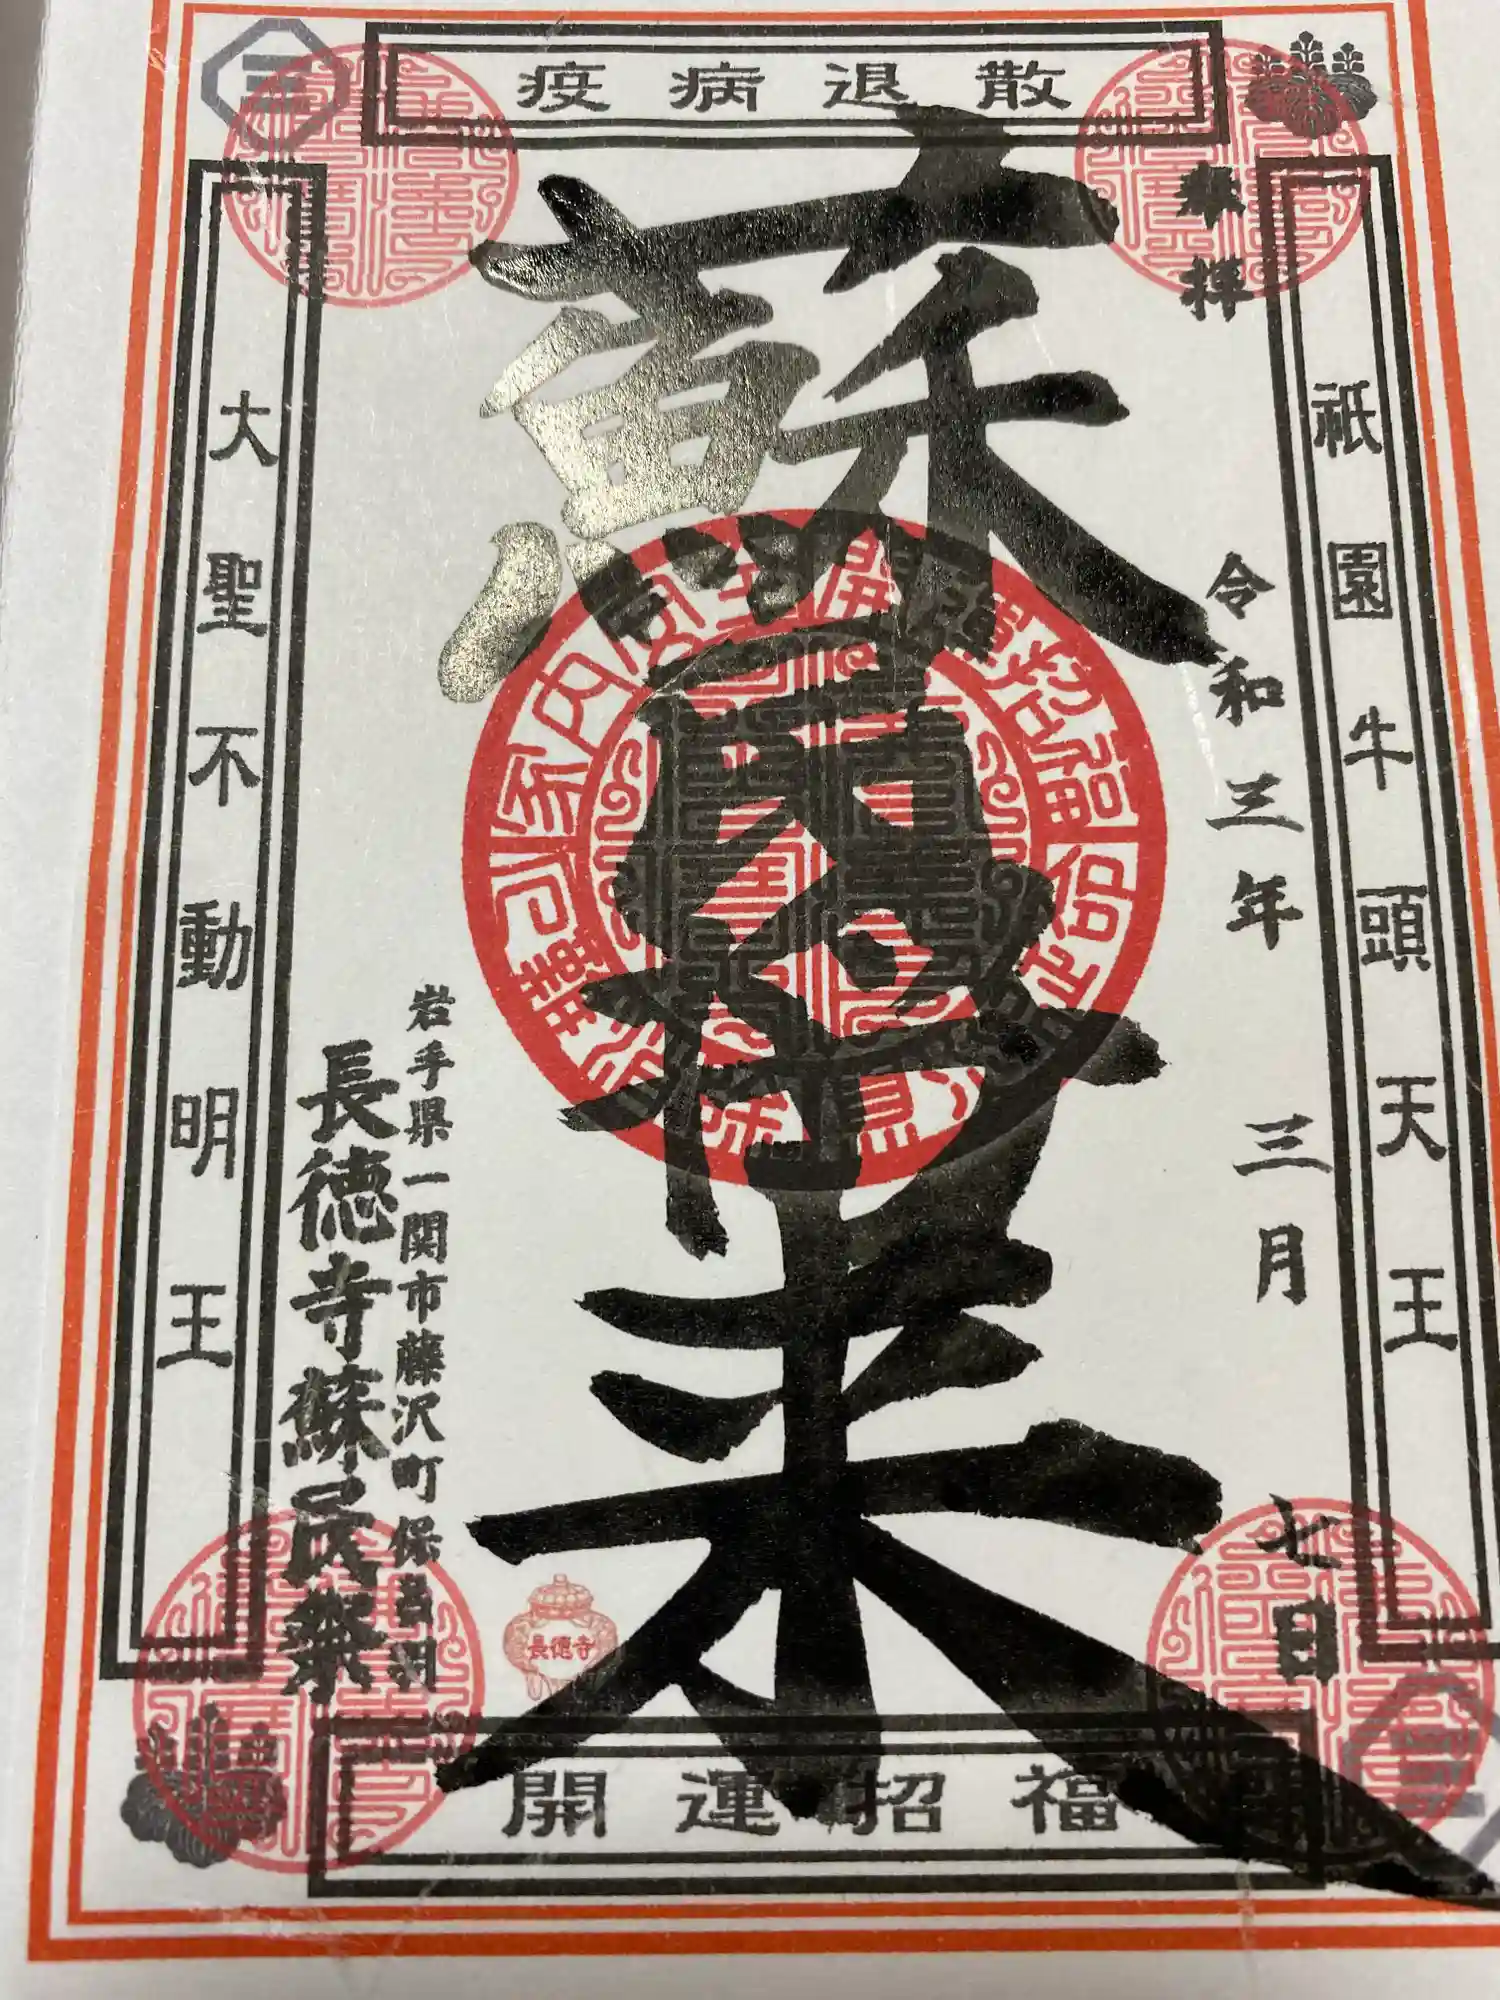 疫病退散
奉拝
祇園牛頭天王
令和三年 三月 七日
蘇民将来
開運招福
家内安全
岩手県一関市藤沢町保呂羽
長徳寺蘇民祭
長徳寺
大聖不動明王
開運招福